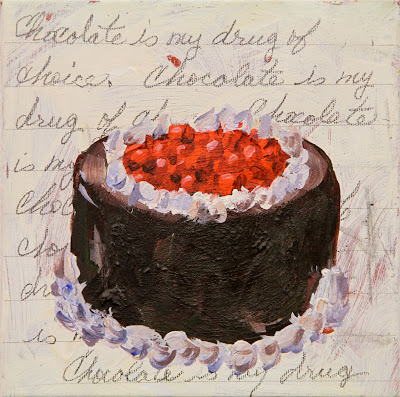 Chocolate is my drug of
choice. Chocolate is my
drug of Chocolate
is my
is
Chocolate is my drug